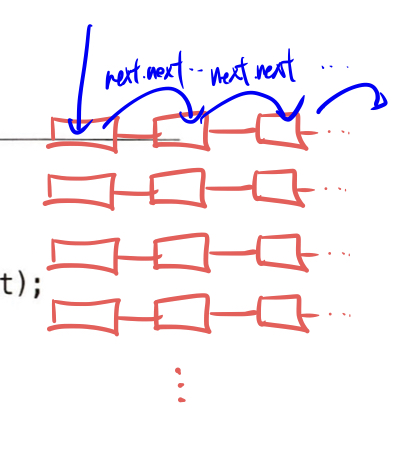 next.next ·· next.next ···
···
···
···
t);
···